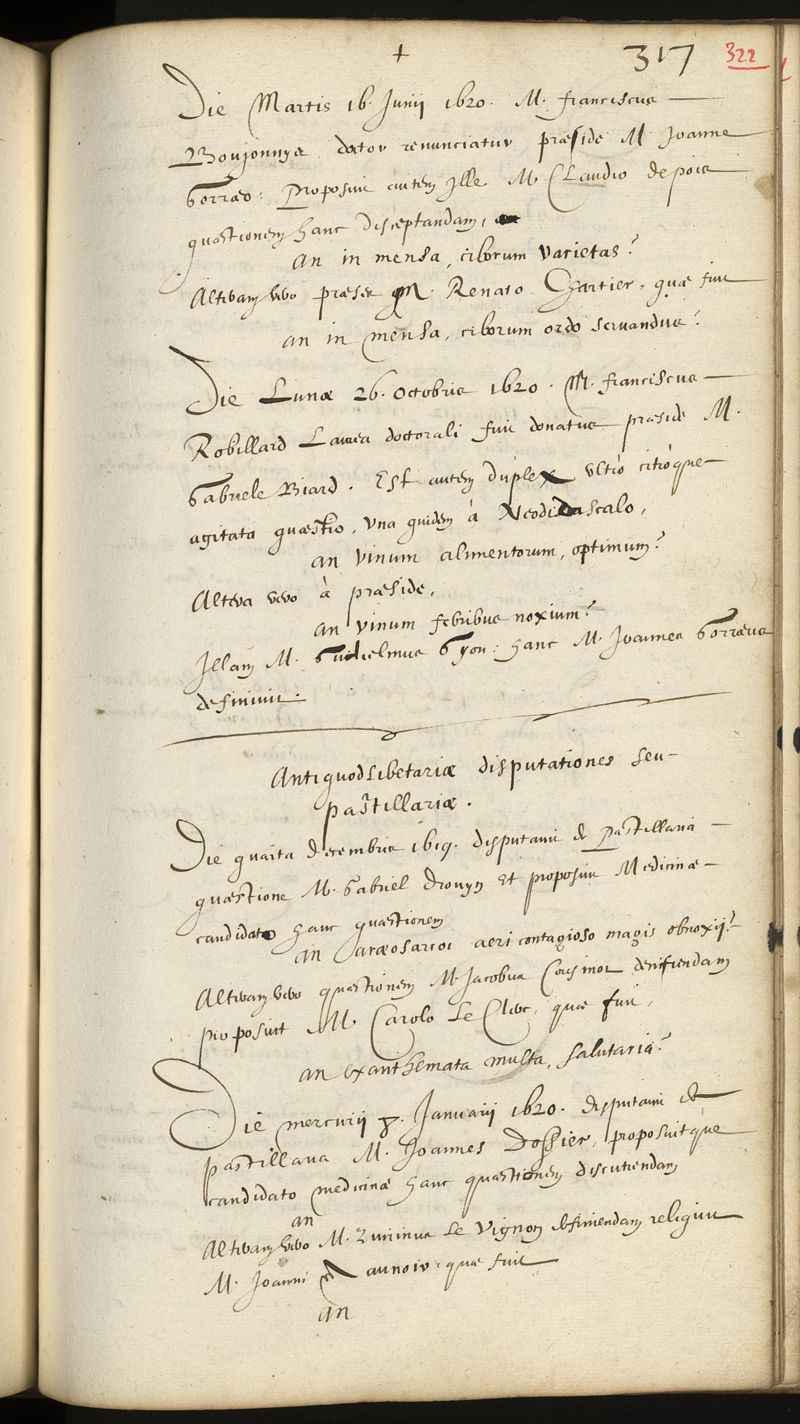 + 317 322
Die Martis 16. Junij 1620. M. franciscus
Boujonnyer doctor renunciatur præside M. Joanne
Gorræo: Proposuit autem Ille M. Claudio de pois
quæstionem hanc disceptandam,
an in mensa, ciborum varietas?
Alteram vero præses M. Renato Chartier, quæ fuit
an in mensa, ciborum ordo servandus?
Die Lunæ 26. octobris 1620. M. franciscus
Robillard Laurea doctorali fuit donatus præside M.
Gabriele Biard. Est autem duplex ultrò citròque
agitata quæstio, Una quidem à Neodidascalo,
an vinum alimentorum, optimum?
Altera vero à præside,
an vinum febribus noxium?
Illam M. Guilielmus Gyon: hanc M. Joannes Gorræus
definivit.
Antiquodlibetariæ disputationes seu
pastillariæ.
Die quarta decembris 1619. disputavit de Pastillaria
quæstione M. Gabriel drouyn et proposuit Medicinæ
candidato hanc quæstionem
an aræosarcoi aeri contagioso magis obnoxij?
Alteram vero quæstionem M. Jacobus Cousinot definiendam
proposuit M. Carolo Le Clerc, quæ fuit,
an exanthemata multa, salutaria?
Die mercurij 8. Januarij 1620. disputavit de
pastillaria M. Joannes Dossier, proposuitque
candidato medicinæ hanc quæstionem discutiendam
an
Alteram vero M. Le Vignon definiendam reliquit
M. Joanni quæ fuit
an